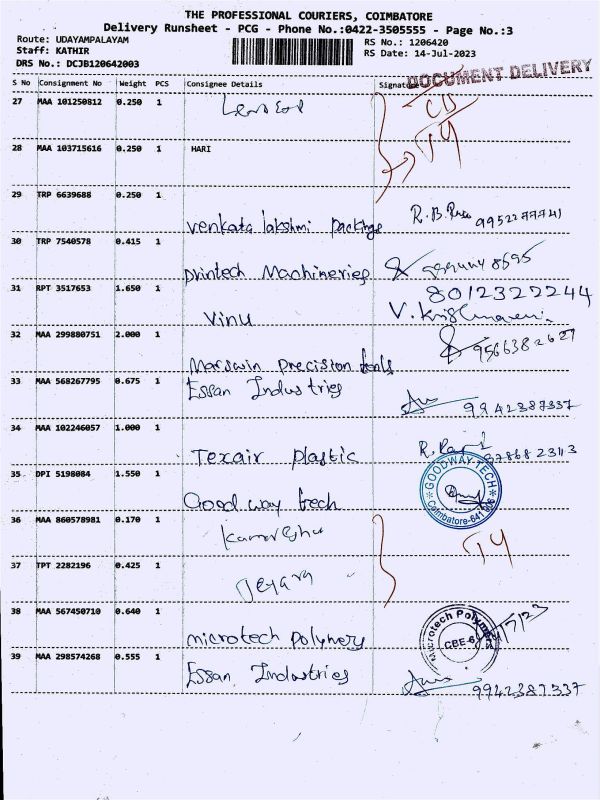 THE PROFESSIONAL COURIERS, COIMBATORE
Delivery Runsheet - PCG - Phone No.:0422-3505555 - Page No.:3
Route: UDAYAMPALAYAM RS No.: 1206420
Staff: KATHIR RS Date: 14-Jul-2023
DRS No.: DCJB120642003
DOCUMENT DELIVERY
S No Consignment No Weight PCS Consignee Details Signature
27 MAA 101250812 0.250 1
28 MAA 103715616 0.250 1 HARI
29 TRP 6639688 0.250 1
Venkata lakshmi package R.B. 9952277741
30 TRP 7540578 0.415 1
Printech Machineries
31 RPT 3517653 1.650 1 8012322244
Vinu V.
32 MAA 299880751 2.000 1
Marswin precision tools 9566382627
33 MAA 568267795 0.675 1 Essan Industries
9942387337
34 MAA 102246057 1.000 1
Texair plastic R.
35 DPI 5198084 1.550 1
Good way tech
GOODWAY-TECH
Coimbatore-641
36 MAA 860578981 0.170 1
37 TPT 2282196 0.425 1
38 MAA 567450710 0.640 1
microtech polymers
Microtech Polymers
CBE-6
39 MAA 298574268 0.555 1 Essan Industries
9942387337